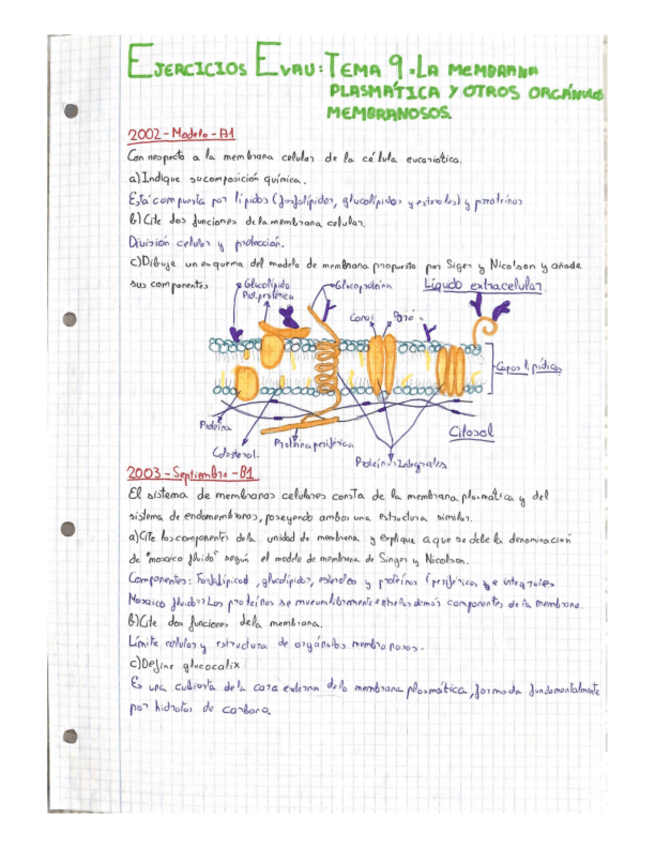 EJERCICIOS EVAU: TEMA 9. LA MEMBRANA
PLASMÁTICA Y OTROS ORGÁNULOS
MEMBRANOSOS.
2002 - Modelo - A1
Con respecto a la membrana celular de la célula eucariótica.
a) Indique su composición química.
Está compuesta por lípidos (fosfolípidos, glucolípidos y esteroles) y proteínas
b) Cite dos funciones de la membrana celular.
División celular y protección.
c) Dibuje un esquema del modelo de membrana propuesto por Siger y Nicolson y añade
sus componentes
Glucolípido
Prot. periférica
Glucoproteína
Líquido extracelular
Canal
Capas lipídicas
Proteína
Colesterol
Proteína periférica
Proteínas Integrales
Citosol
2003 - Septiembre - B1
El sistema de membranas celulares consta de la membrana plasmática y del
sistema de endomembranas, poseyendo ambos una estructura similar.
a) Cite los componentes de la unidad de membrana y explique a que se debe la denominación
de "mosaico fluido" según el modelo de membrana de Singer y Nicolson.
Componentes: Fosfolípidos, glucolípidos, esteroles y proteínas (periféricas e integrales
Mosaico fluido: Las proteínas se mueven libremente entre los demás componentes de la membrana.
b) Cite dos funciones de la membrana.
Límite celular y estructura de orgánulos membranosos.
c) Define glucocalix
Es una cubierta de la cara externa de la membrana plasmática, formada fundamentalmente
por hidratos de carbono.